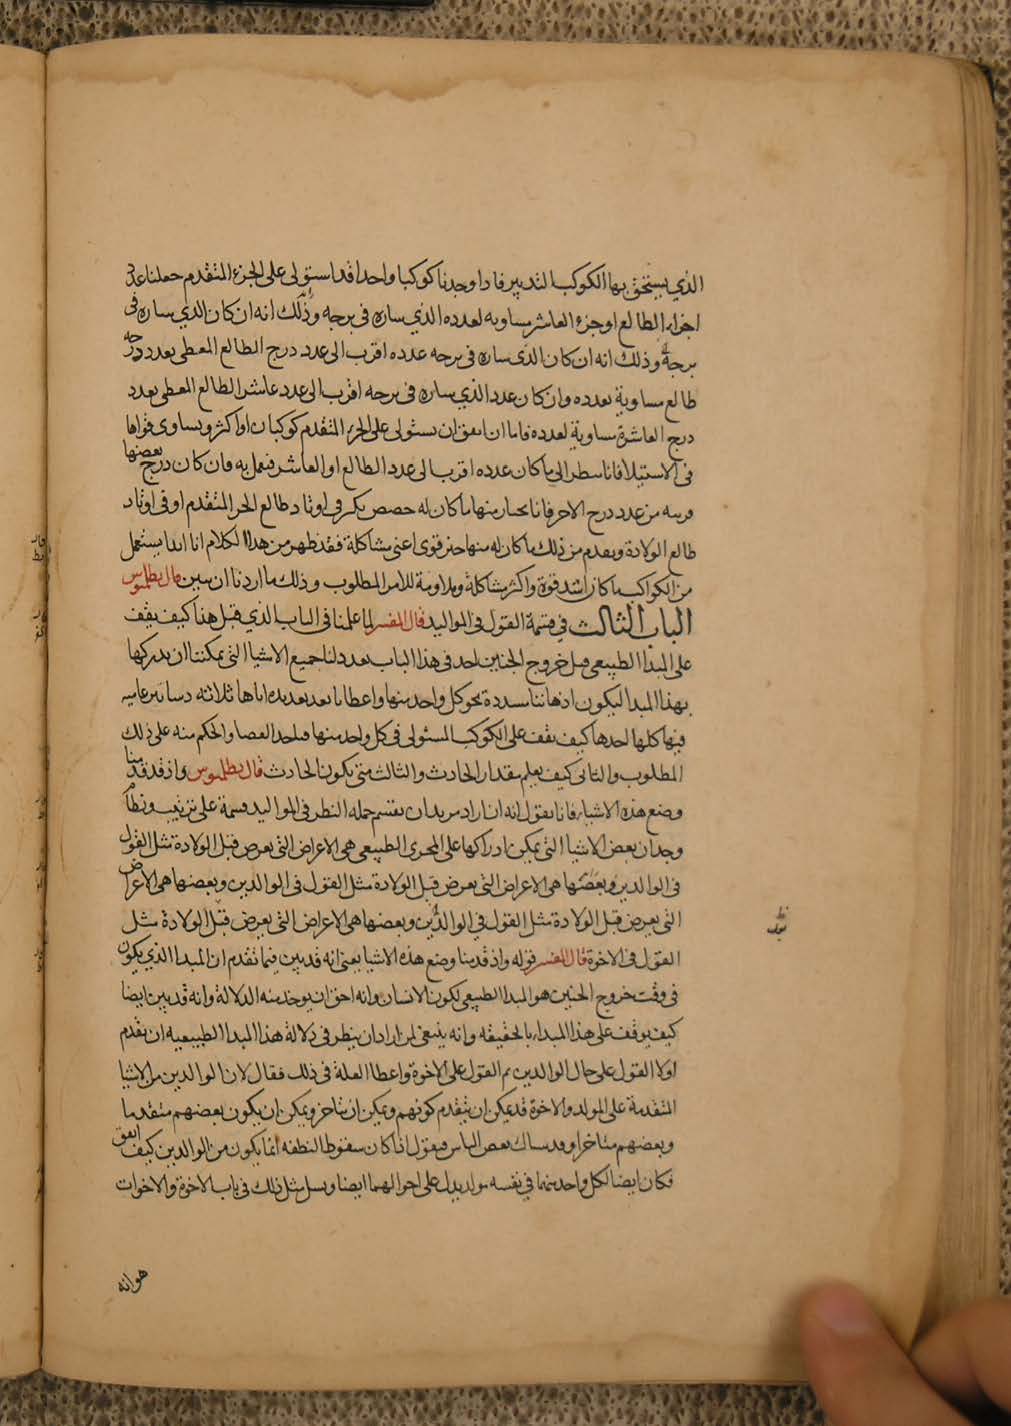 الذي يستحق بها الكوكب التدبير فاذا وجدنا كوكبا واحدا قد استولى على الجزء المتقدم جعلنا عدد
اجزاء الطالع او جزء العاشر مساويه لعدده الذي ساره في برجه وذلك انه ان كان الذي ساره في
برجه وذلك انه ان كان الذى ساره فى برجه عدده اقرب الى عدد درج الطالع المعطى بعدد درجه
طالع مساوية بعدده وان كان عدد الذي ساره في برجه اقرب الى عدد عاشر الطالع المعطى بعدد
درج العاشرة مساوية لعدده فاما ان اتفق ان يستولى على الجزء المتقدم كوكبان او اكثر ويتساوى قواها
فى الاستيلا فانا سطر الى ما كان عدده اقرب الى عدد الطالع او العاشر فنعمل به فان كان درج بعضها
قريبه من عدد درج الاخر فانا نختار منها ما كان له حصص بكثر في اوتاد طالع الجزء المتقدم او فى اوتاد
طالع الولادة ويقدم من ذلك ما كان له منها حيز قوى اعنى مشاكلة فقد ظهر من هذا الكلام انا ابدا يستعمل
من الكواكب ما كان اشد قوة واكثر مشاكلة وملاومة للامر المطلوب وذلك ما اردنا ان نبين قال بطلميوس
الباب الثالث في قسمة القول فى المواليد قال المفسر لما علمنا فى الباب الذي قبل هذا كيف يقف
على المبدا الطبيعى قبل خروج الجنين اخذ فى هذا الباب يعدد لنا جميع الاشيا التى يمكننا ان ندركها
بهذا المبدا ليكون اذهاننا مسددة نحو كل واحد منها واعطانا بعد تعديده اياها ثلاثه دساتير عاميه
فيها كلها احدها كيف نقف على الكوكب المستولى فى كل واحد منها فناخذ القضا والحكم منه على ذلك
المطلوب والثانى كيف يعلم مقدار الحادث والثالث متى يكون الحادث قال بطلميوس واذ قد قدمنا
وضع هذه الاشياء فانا نقول انه ان اراد مريد ان يقسم جمله النظر فى المواليد قسمة على ترتيب ونظام
وجد ان بعض الاشيا التى يمكن ادراكها على المجرى الطبيعى هى الاعراض التى تعرض قبل الولادة مثل القول
فى الوالدين وبعضها هى الاعراض التى تعرض قبل الولادة مثل القول فى الوالدين وبعضها هى الاعراض
التى تعرض قبل الولادة مثل القول في الوالدين وبعضها هى الاعراض التى تعرض قبل الولادة مثل
القول فى الاخوة قال المفسر قوله واذ قدمنا وضع هذه الاشيا يعنى انه قد بين فيما تقدم ان المبدا الذي يكون
فى وقت خروج الجنين هو المبدا الطبيعى لكون الانسان وانه احق ان يوخذ منه الدلالة وانه قد بين ايضا
كيف يوقف على هذا المبداء بالحقيقه وانه ينبغى لمن اراد ان ينظر فى دلالة هذا المبدا الطبيعيه ان يقدم
اولا القول على حال الوالدين ثم القول على الاخوة واعطا العلة فى ذلك فقال لان الوالدين من الاشيا
المتقدمة على المولد والاخوة قد يمكن ان يتقدم كونهم ويمكن ان يتاخر ويمكن ان يكون بعضهم متقدما
وبعضهم متاخرا وقد سال بعض الناس فيقول اذا كان سقوط النطفه انما يكون من الوالدين كيف اتفق
فكان ايضا لكل واحد منهما في نفسه مولد يدل على احوالهما ايضا وسل مثل ذلك فى باب الاخوة والاخوات
هوانه